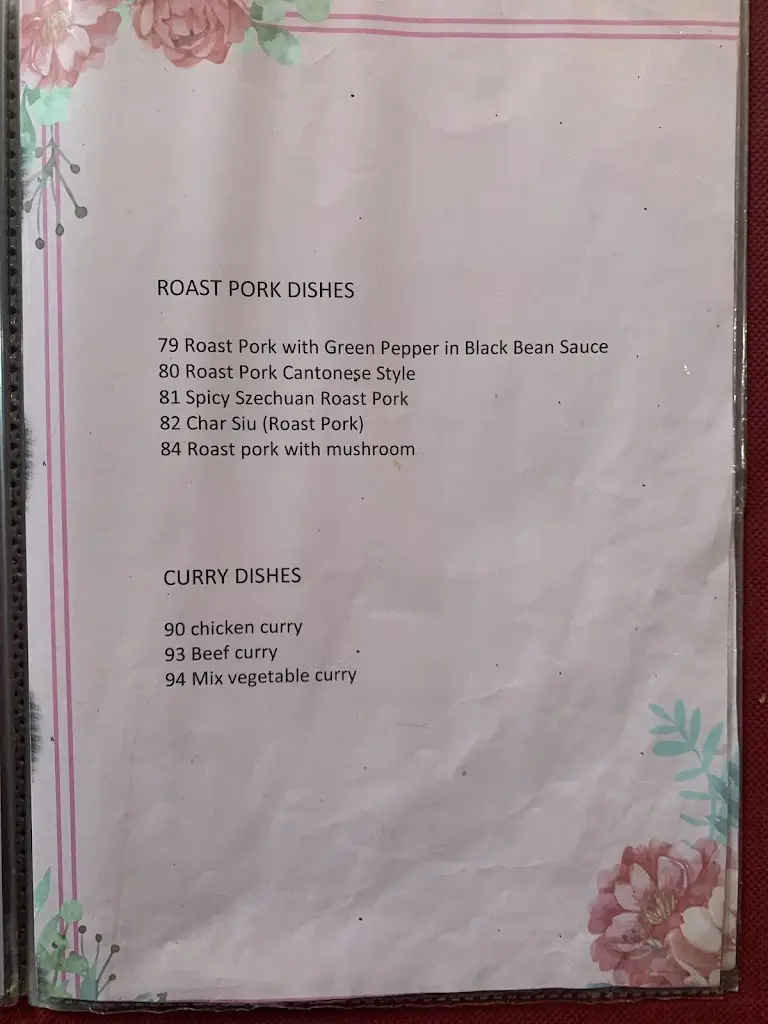 ROAST PORK DISHES
79 Roast Pork with Green Pepper in Black Bean Sauce
80 Roast Pork Cantonese Style
81 Spicy Szechuan Roast Pork
82 Char Siu (Roast Pork)
84 Roast pork with mushroom
CURRY DISHES
90 chicken curry
93 Beef curry
94 Mix vegetable curry